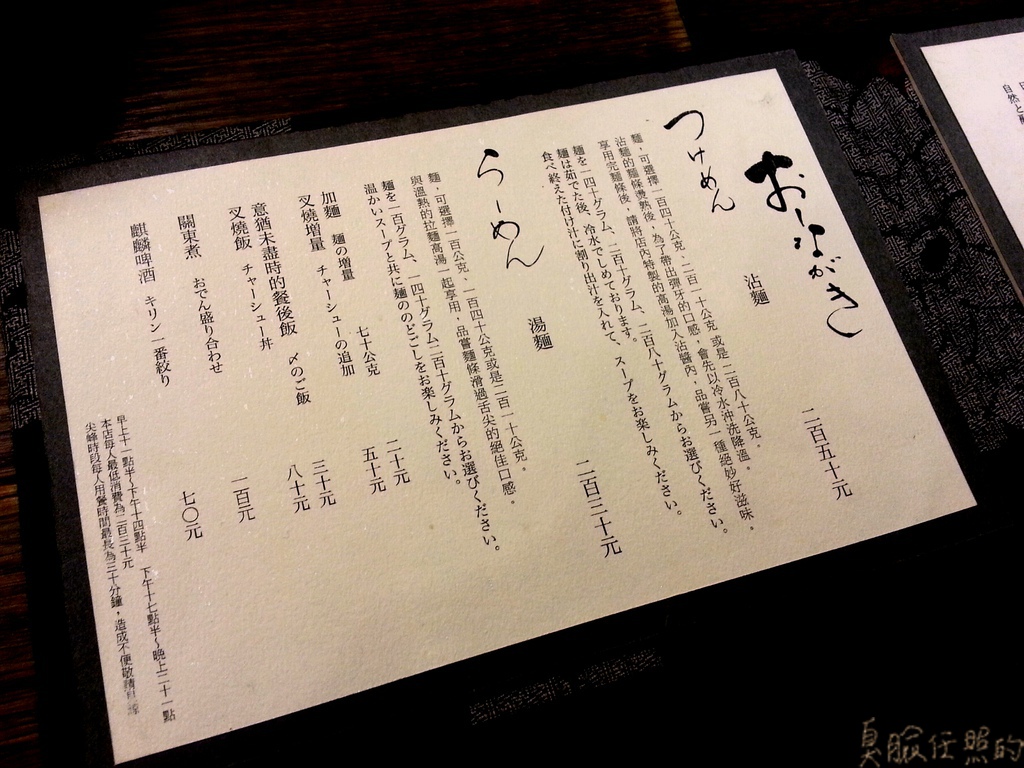 おしながき
つけめん 沾麵 二百五十元
麵，可選擇一百四十公克、二百一十公克或是二百八十公克。
沾麵的麵條燙熟後，為了帶出彈牙的口感，會先以冷水沖洗降溫。
享用完麵條後，請將店內特製的高湯加入沾醬內，品嘗另一種絕妙好滋味。
麺を一四十グラム、二百十グラム、二百八十グラムからお選びください。
麺は茹でた後、冷水でしめております。
食べ終えた付け汁に割り出汁を入れて、スープをお楽しみください。
らーめん 湯麵 二百三十元
麵，可選擇一百公克、一百四十公克或是二百一十公克。
與溫熱的拉麵高湯一起享用，品嘗麵條滑過舌尖的絕佳口感。
麺を一百グラム、一四十グラム二百十グラムからお選びください。
温かいスープと共に麺ののどごしをお楽しみください。
加麵 麺の增量 七十公克 二十元
叉燒增量 チャーシューの追加 五十元
意猶未盡時的餐後飯 〆のご飯 三十元
叉燒飯 チャーシュー丼 八十元
關東煮 おでん盛り合わせ 一百元
麒麟啤酒 キリン一番絞り 七〇元
早上十一點半~下午十四點半 下午十七點半~晚上二十一點
本店每人最低消費為二百三十元
尖峰時段每人用餐時間最長為三十分鐘，造成不便敬請見諒
自然と
臭臉任照的